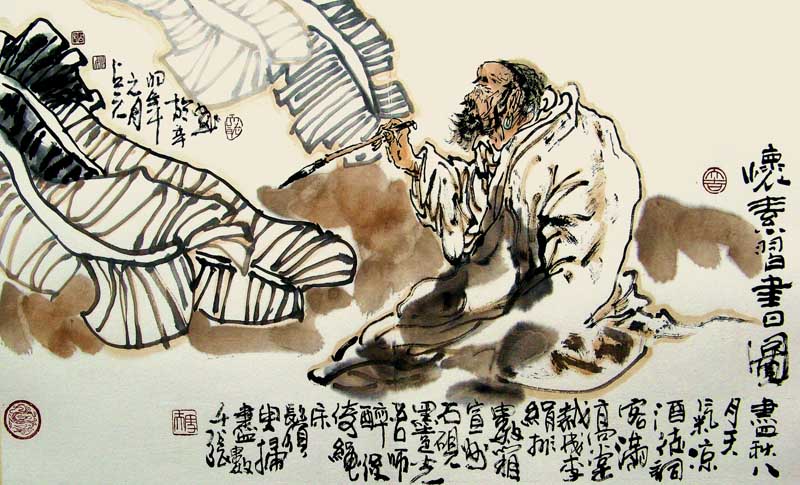 懷素習書圖
秋八
月天
氣凉
酒徒詞
客滿
高堂
絹排
數箱
宣州
石硯
墨色光
吾師
醉後
倚繩
床
須
臾掃
盡數
千張
年
元月